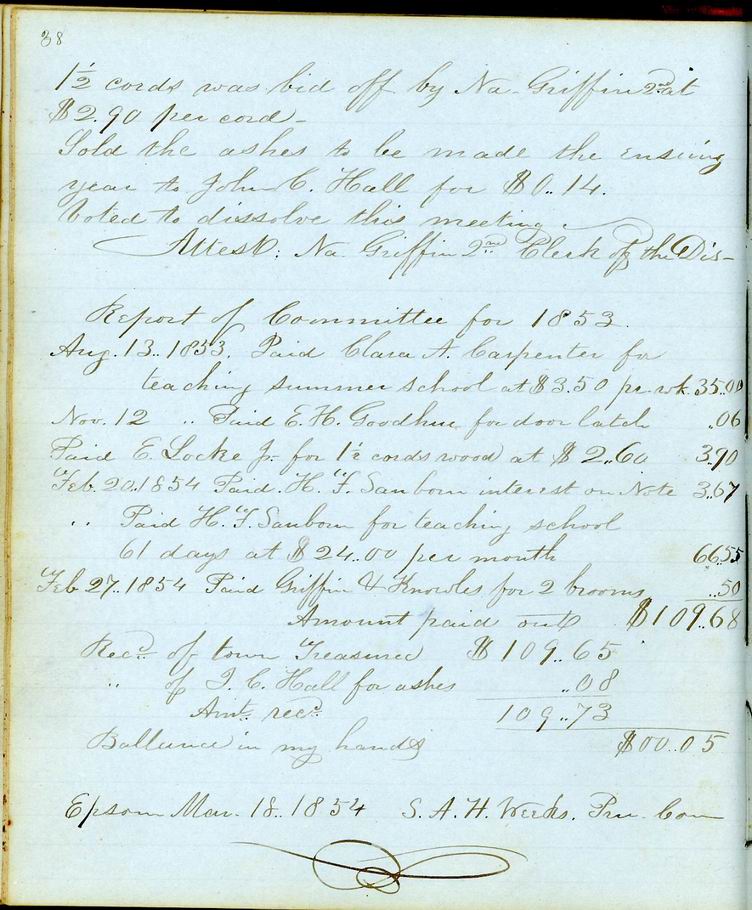 38
1½ cords was bid off by Na. Griffin 2nd at
$2.90 per cord -
Sold the ashes to be made the ensuing
year to John C. Hall for $0..14.
Voted to dissolve this meeting.
Attest: Na. Griffin 2nd Clerk of the Dis-
Report of Committee for 1853.
Aug. 13.. 1853. Paid Clara A. Carpenter for
teaching summer school at $3.50 pr wk. 35..00
Nov. 12 " Paid E. H. Goodhue for door latch ..06
Paid E. Locke Jr. for 1½ cords wood at $2..60 3..90
Feb. 20. 1854 Paid. H. F. Sanborn interest on Note 3..67
" Paid H. F. Sanborn for teaching school
61 days at $24..00 per month 66..55
Feb 27.. 1854 Paid Griffin & Knowles for 2 brooms ..50
Amount paid out $109..68
Recd. of town Treasurer $109..65
" of J. C. Hall for ashes ..08
Amt. recd. 109..73
Ballance in my hands $00..05
Epsom Mar. 18.. 1854 S. A. H. Weeks. Pru. Com